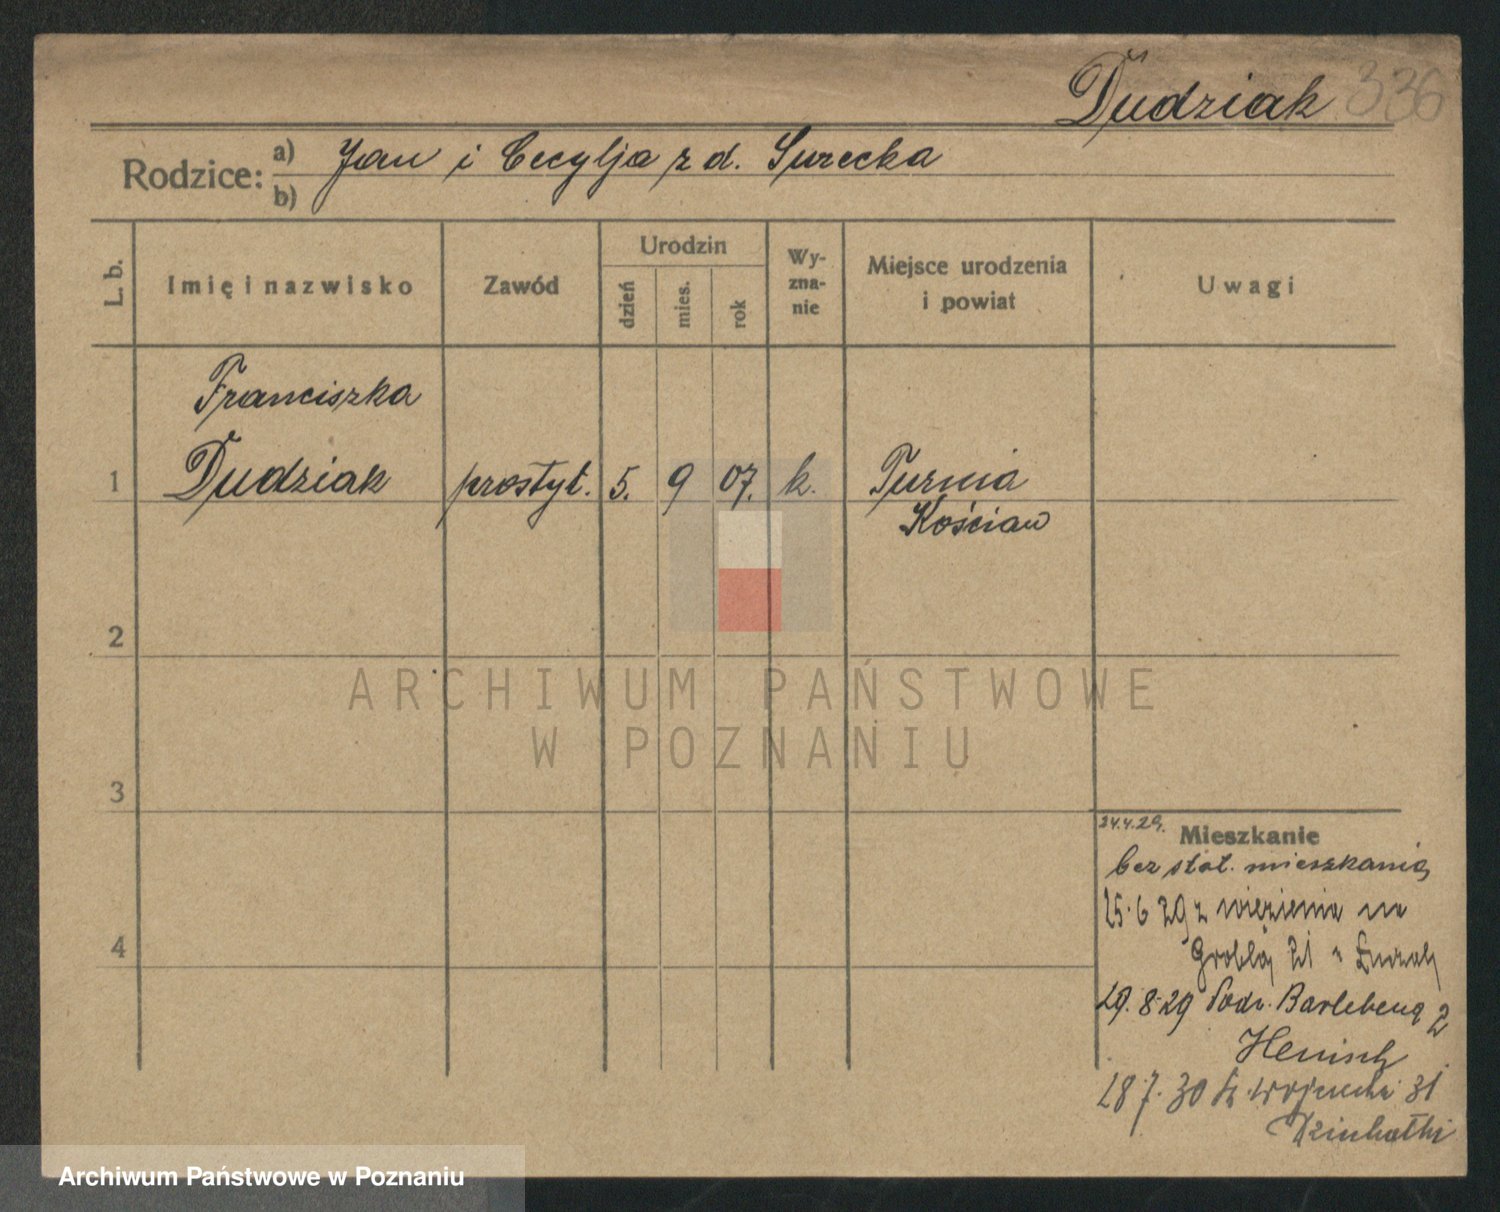 Dudziak 336
Rodzice: a) Jan i Cecylja z d. Surecka
b)
L. b. Imię i nazwisko Zawód Urodzin dzień mies. rok Wyznanie Miejsce urodzenia i powiat Uwagi
Franciszka
1 Dudziak prostyt. 5. 9 07. k. Turnia
Kościan
2
ARCHIWUM PAŃSTWOWE
W POZNANIU
3
24.4.29. Mieszkanie
bez stał. mieszkania
25.6 29 z więzienia na
Groblą 21
29.8-29 Barlebena 2
Henisch
28.7.30 31
4
Archiwum Państwowe w Poznaniu